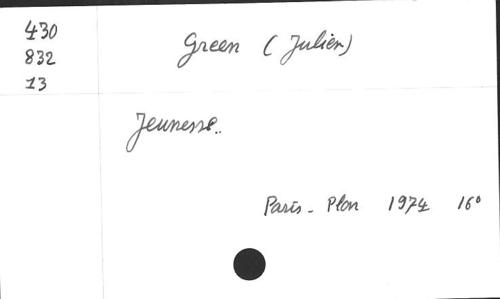 430
832
13
Green (Julien)
Jeunesse..
Paris - Plon 1974 16°